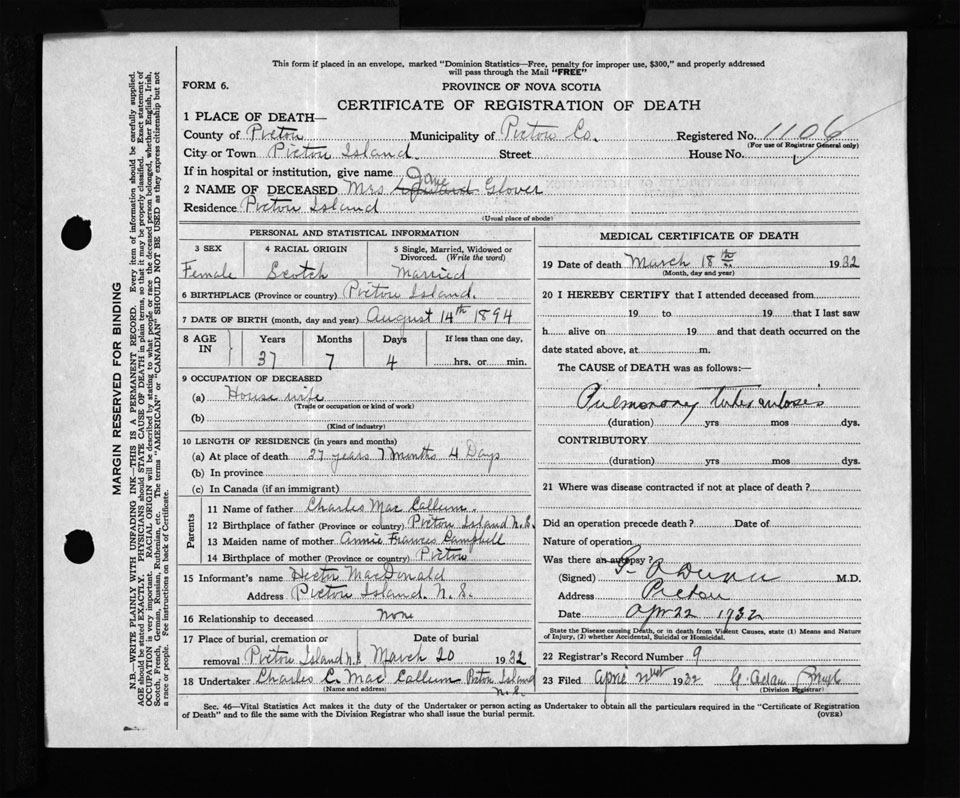 This form if placed in an envelope, marked "Dominion Statistics—Free, penalty for improper use, $300," and properly addressed
will pass through the Mail "FREE"
FORM 6.
PROVINCE OF NOVA SCOTIA
CERTIFICATE OF REGISTRATION OF DEATH
1 PLACE OF DEATH—
County of Pictou Municipality of Pictou Co. Registered No. 1106
(For use of Registrar General only)
City or Town Pictou Island. Street House No.
If in hospital or institution, give name
2 NAME OF DECEASED Mrs Jane Glover
Residence Pictou Island
(Usual place of abode)
PERSONAL AND STATISTICAL INFORMATION
3 SEX 4 RACIAL ORIGIN 5 Single, Married, Widowed or Divorced. (Write the word)
Female Scotch Married
6 BIRTHPLACE (Province or country) Pictou Island.
7 DATE OF BIRTH (month, day and year) August 14th 1894
8 AGE IN Years Months Days If less than one day,
37 7 4 hrs. or min.
9 OCCUPATION OF DECEASED
(a) House wife
(Trade or occupation or kind of work)
(b)
(Kind of industry)
10 LENGTH OF RESIDENCE (in years and months)
(a) At place of death 37 years 7 Months 4 Days
(b) In province
(c) In Canada (if an immigrant)
Parents
11 Name of father Charles Mac Callum.
12 Birthplace of father (Province or country) Pictou Island N.S.
13 Maiden name of mother Annie Frances Campbell
14 Birthplace of mother (Province or country) Pictou
15 Informant's name Hector MacDonald
Address Pictou Island. N.S.
16 Relationship to deceased None
17 Place of burial, cremation or Date of burial
removal Pictou Island N.S March 20 1932
18 Undertaker Charles C. Mac Callum Pictou Island
(Name and address) N.S.
MEDICAL CERTIFICATE OF DEATH
19 Date of death March 18th 1932
(Month, day and year)
20 I HEREBY CERTIFY that I attended deceased from
19 to 19 that I last saw
h alive on 19 and that death occurred on the
date stated above, at m.
The CAUSE of DEATH was as follows:—
Pulmonary Tuberculosis
(duration) yrs mos dys.
CONTRIBUTORY
(duration) yrs mos dys.
21 Where was disease contracted if not at place of death?
Did an operation precede death? Date of
Nature of operation
Was there an autopsy?
(Signed) M.D.
Address Pictou
Date Apr 22 1932
State the Disease causing Death, or in death from Violent Causes, state (1) Means and Nature
of Injury, (2) whether Accidental, Suicidal or Homicidal.
22 Registrar's Record Number 9
23 Filed April 1932 G.
(Division Registrar)
Sec. 46—Vital Statistics Act makes it the duty of the Undertaker or person acting as Undertaker to obtain all the particulars required in the "Certificate of Registration
of Death" and to file the same with the Division Registrar who shall issue the burial permit.
(OVER)
MARGIN RESERVED FOR BINDING
N.B.—WRITE PLAINLY WITH UNFADING INK—THIS IS A PERMANENT RECORD. Every item of information should be carefully supplied.
AGE should be stated EXACTLY. PHYSICIANS should STATE CAUSE OF DEATH in plain terms, so that it may be properly classified. Exact statement of
OCCUPATION is very important. RACIAL ORIGIN will be described by stating to what people or race the deceased person belonged, whether English, Irish,
Scotch, French, German, Russian, Ruthenian, etc. The terms "AMERICAN" or "CANADIAN" SHOULD NOT BE USED as they express citizenship but not
a race or people. See instructions on back of Certificate.